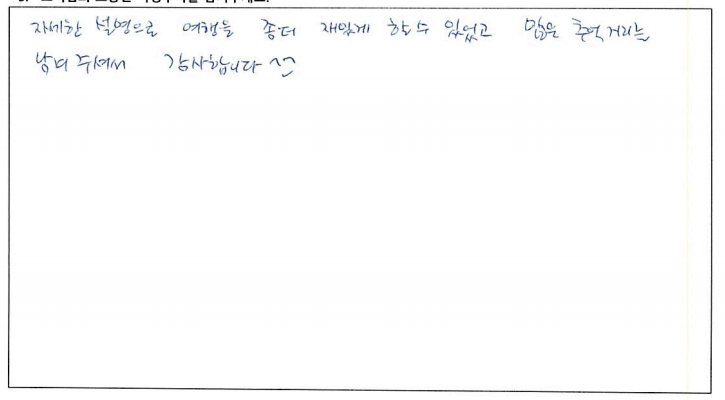 자세한 설명으로 여행을 좀더 재밌게 할 수 있었고 많은 추억거리를
남겨 주셔서 감사합니다 ^^